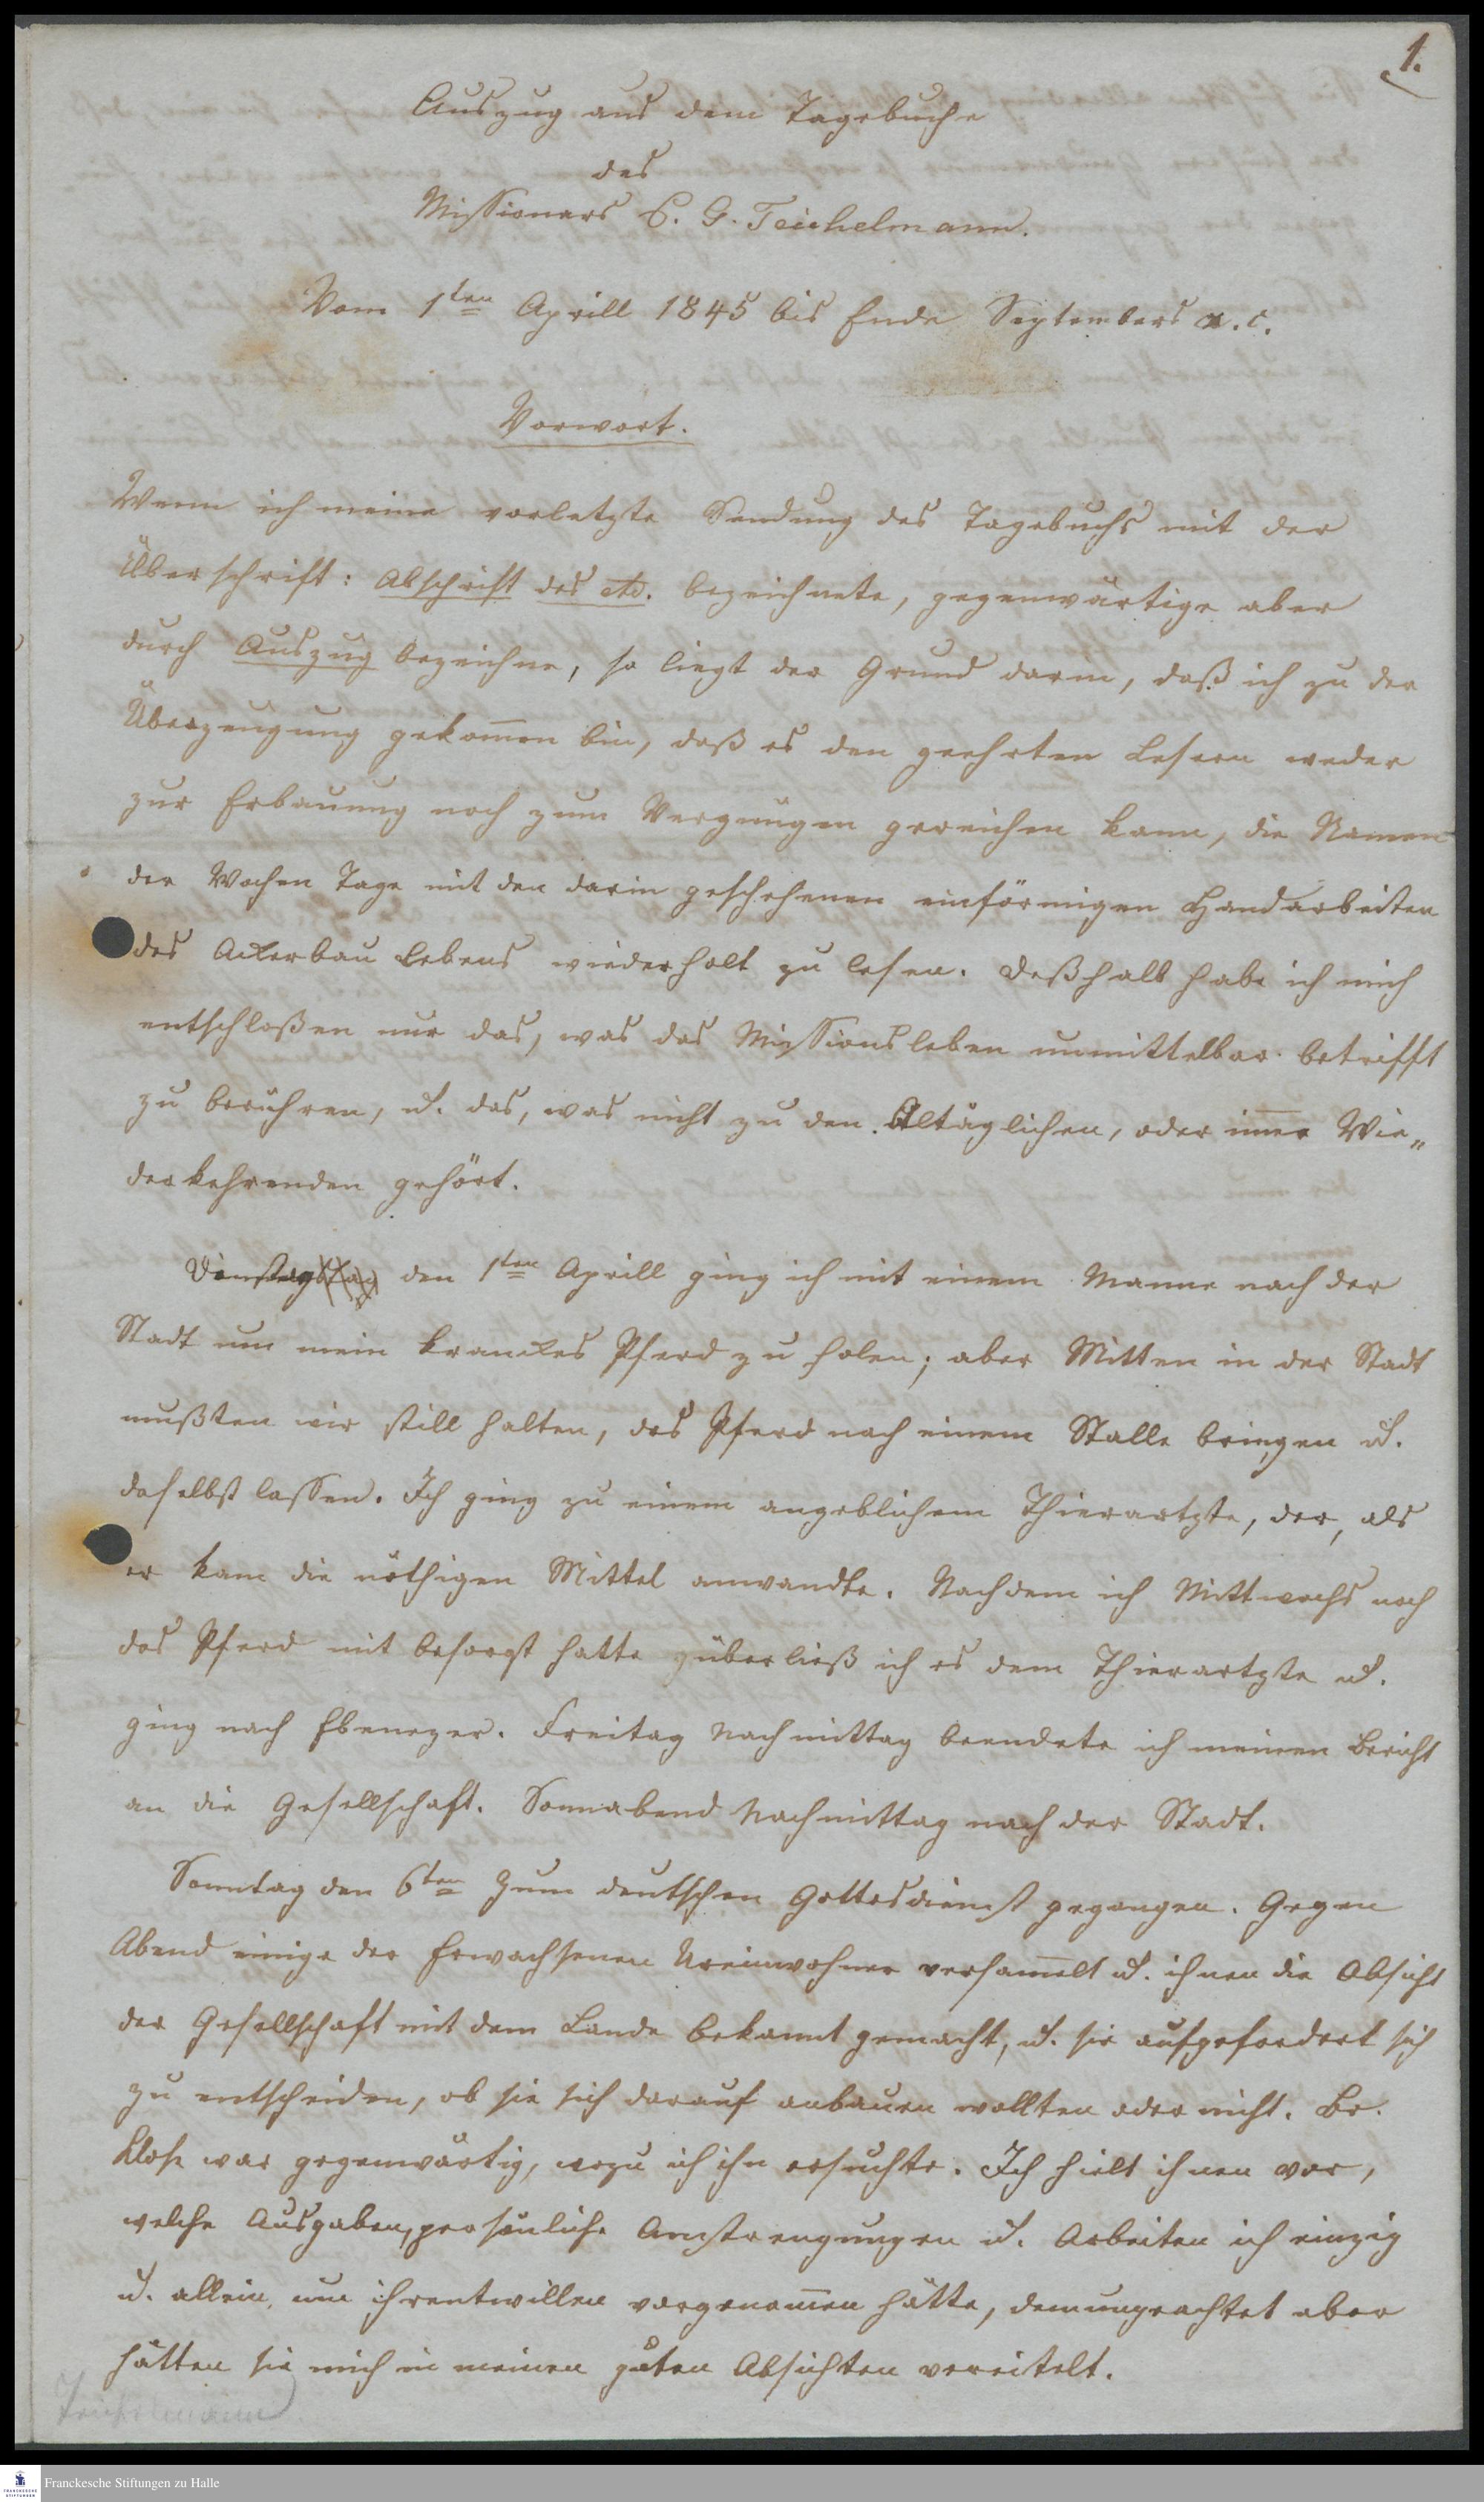 1.
Auszug aus dem Tagebuche
des
Missionars C. G. Teichelmann.
Vom 1ten Aprill 1845 bis Ende Septembers a. c.
Vorwort.
Wenn ich meine vorletzte Sendung des Tagebuchs mit der
Überschrift: Abschrift des etc. bezeichnete, gegenwärtige aber
durch Auszug bezeichne, so liegt der Grund darin, daß ich zu der
Überzeugung gekom̄en bin, daß es den geehrten Lesern weder
zur Erbauung noch zum Vergnügen gereichen kann, die Namen
der Wochen Tage mit den darin geschehenen einförmigen Handarbeiten
des Ackerbau Lebens wiederholt zu lesen. Deßhalb habe ich mich
entschloßen nur das, was das Missionsleben unmittelbar betrifft
zu berühren, u. das, was nicht zu den Altäglichen, oder im̄er Wie„
derkehrenden gehört.
Dienstag den 1ten Aprill ging ich mit einem Manne nach der
Stadt um mein kranckes Pferd zu holen; aber Mitten in der Stadt
mußten wir still halten, das Pferd nach einem Stalle bringen u.
daselbst lassen. Ich ging zu einem angeblichem Thierartzte, der, als
er kam die nöthigen Mittel anwandte. Nachdem ich Mittwochs noch
das Pferd mit besorgt hatte überließ ich es dem Thierartzte u.
ging nach Ebenezer. Freitag Nachmittag beendete ich meinen Bericht
an die Gesellschaft. Sonnabend Nachmittag nach der Stadt.
Sonntag den 6ten Zum deutschen Gottesdienst gegangen. Gegen
Abend einige der Erwachsenen Ureinwohner versam̄elt u. ihnen die Absicht
der Gesellschaft mit dem Lande bekannt gemacht, u. sie aufgefordert sich
zu entscheiden, ob sie sich darauf anbauen wollten oder nicht. Br.
Klose war gegenwärtig, wozu ich ihn ersuchte. Ich hielt ihnen vor,
welche Ausgaben, persönliche Anstrengungen u. Arbeiten ich einzig
u. allein um ihrentwillen vorgenom̄en hätte, demungeachtet aber
hätten sie mich in meinen guten Absichten vereitelt.
Teichelmann
Franckesche Stiftungen zu Halle
FRANCKESCHE
STIFTUNGEN